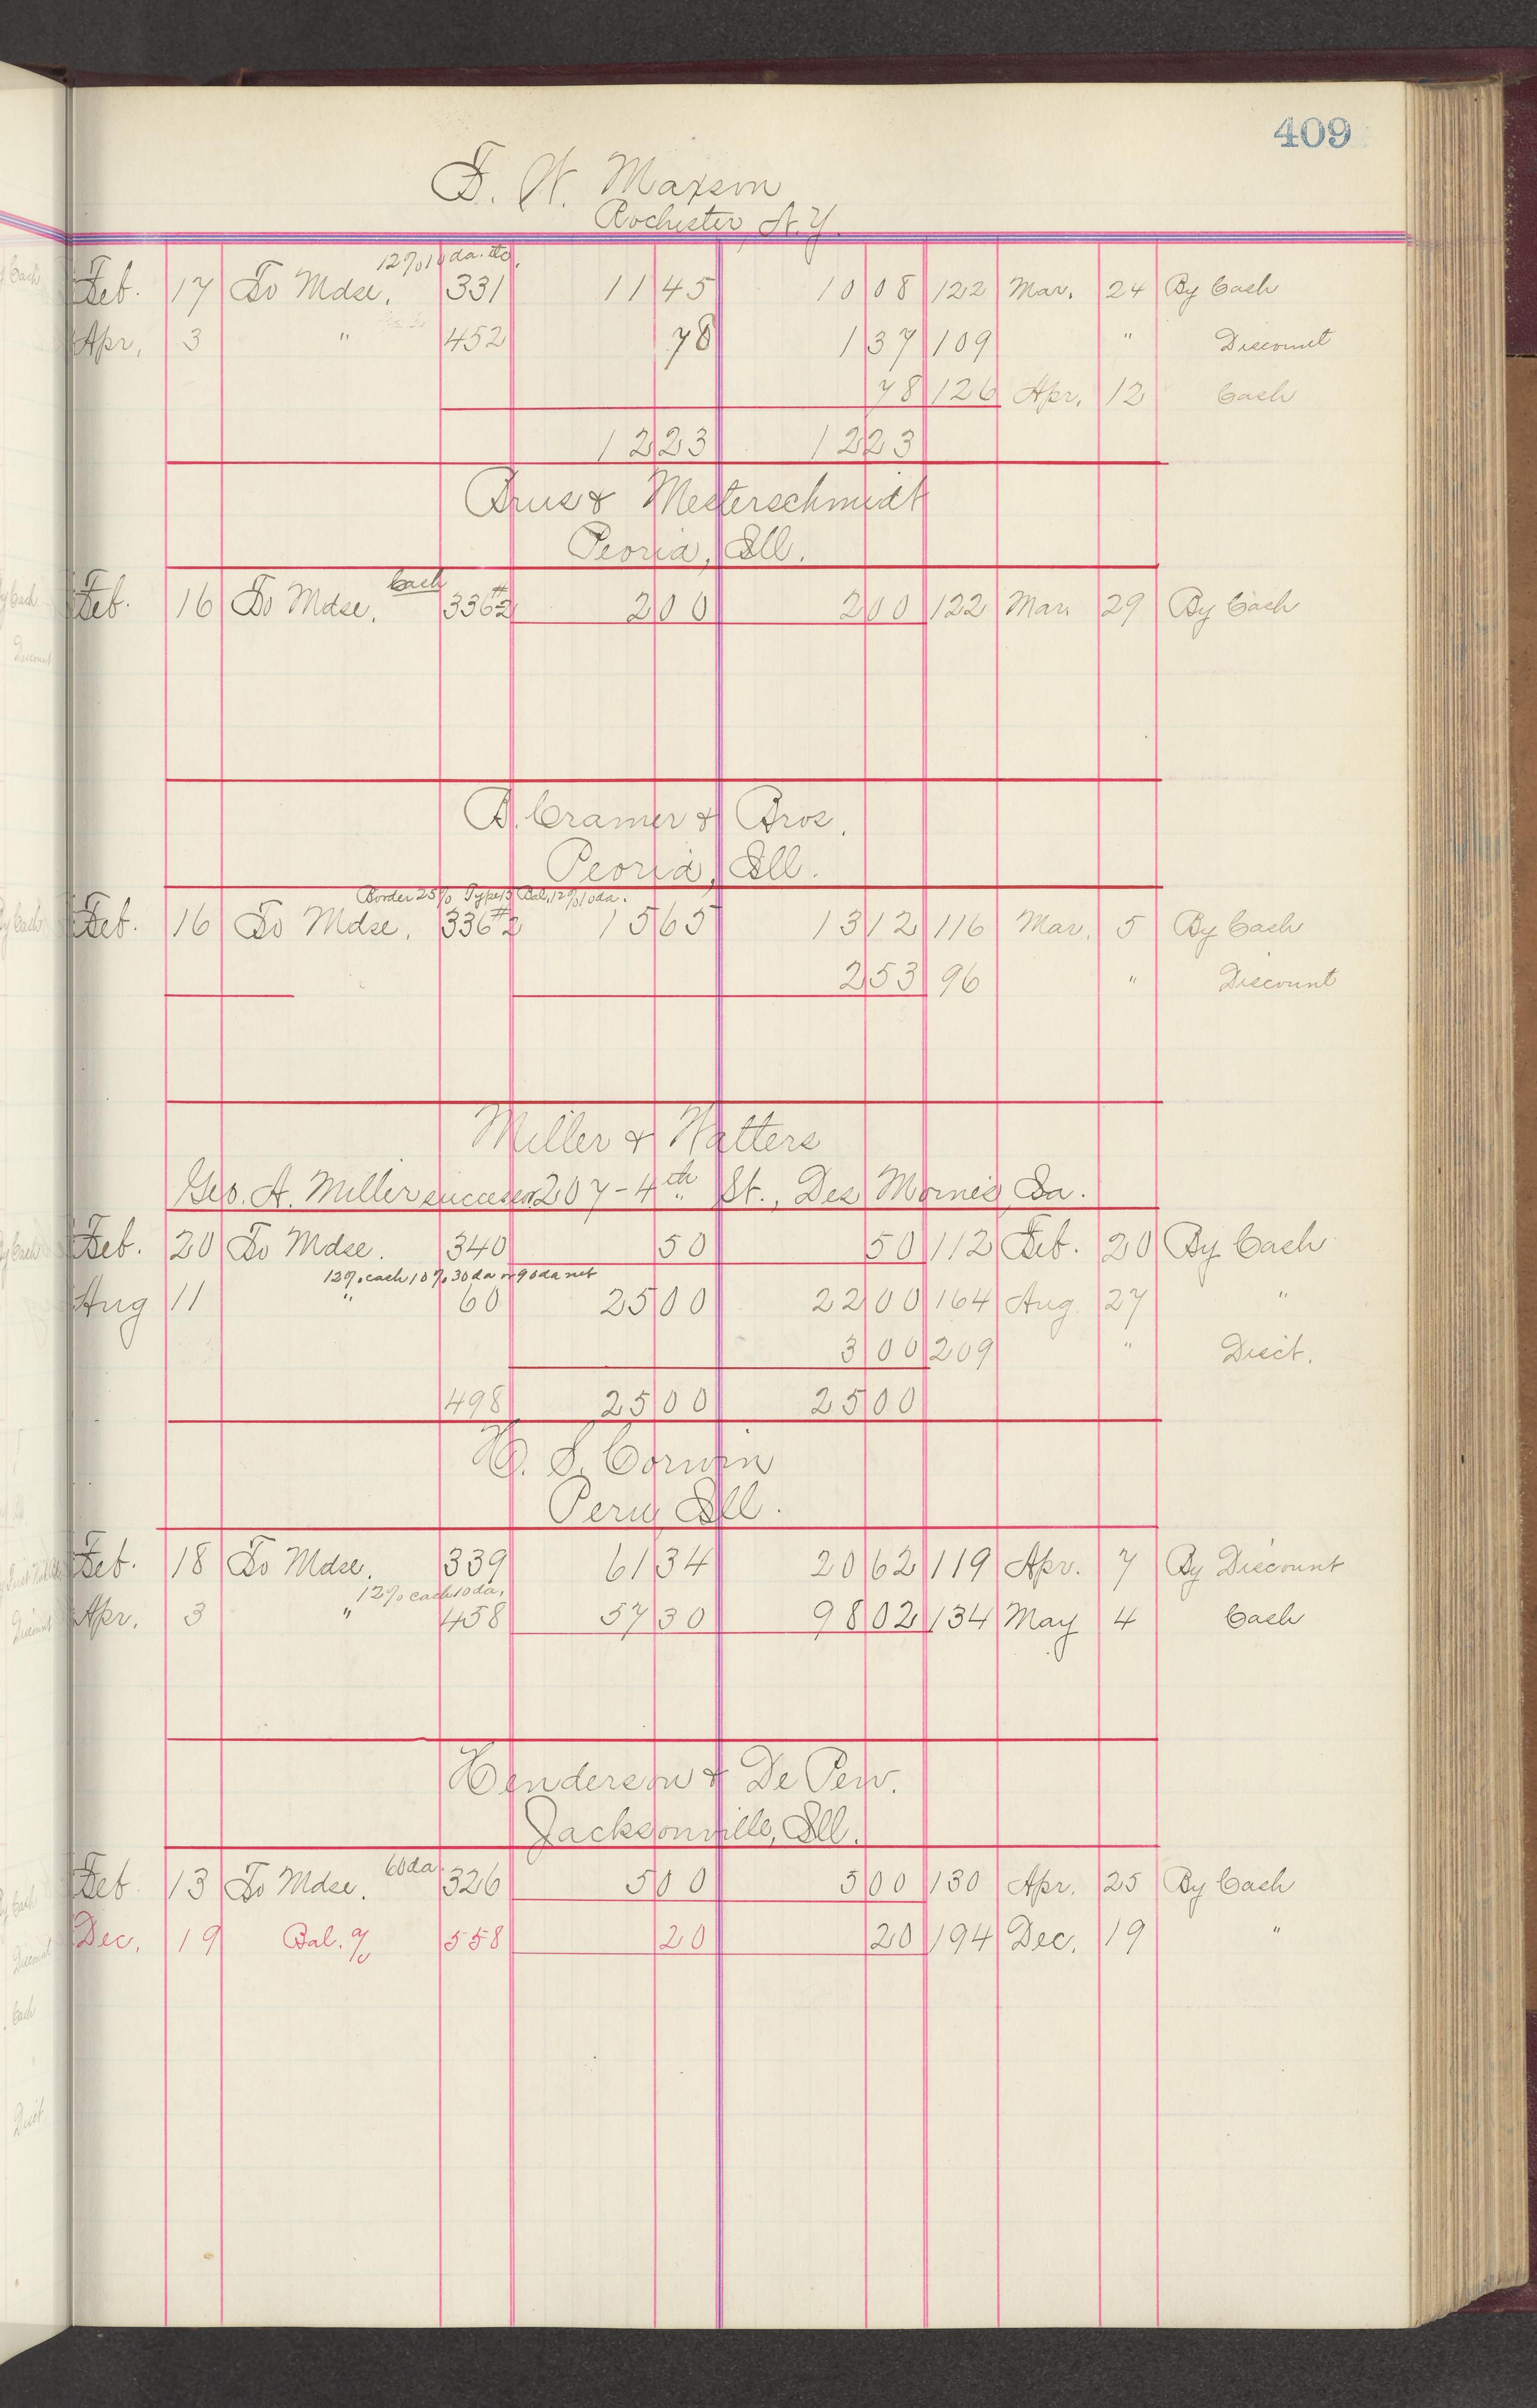 409
F. W. Maxson
Rochester N.Y.
12% 10 da. etc.
Feb. 17 To Mdse. 331 11 45 10 08 122 Mar. 24 By Cash
Apr. 3 " 452 78 1 37 109 " Discount
78 126 Apr. 12 Cash
12 23 12 23
Brus & Mesterschmidt
Peoria, Ill.
Cash
Feb. 16 To Mdse. 336#2 2 00 2 00 122 Mar. 29 By Cash
B. Cramer & Bros.
Peoria, Ill.
Border 25% Type & Bal. 12% 10 da.
Feb. 16 To Mdse. 336#2 15 65 13 12 116 Mar. 5 By Cash
2 53 96 " Discount
Miller & Walters
Geo. A. Miller successor 207 - 4th St., Des Moines, Ia.
Feb. 20 To Mdse. 340 50 50 112 Feb. 20 By Cash
12% cash 10% 30 da or 90 da net
Aug 11 " 60 25 00 22 00 164 Aug. 27 "
3 00 209 " Disct.
498 25 00 25 00
H. S. Corwin
Peru Ill.
Feb. 18 To Mdse. 339 61 34 20 62 119 Apr. 7 By Discount
12% cash 10 da.
Apr. 3 " 458 57 30 98 02 134 May 4 Cash
Henderson & De Pew.
Jacksonville, Ill.
60 da
Feb 13 To Mdse. 326 5 00 5 00 130 Apr. 25 By Cash
Dec. 19 Bal. a/c 558 20 20 194 Dec. 19 "